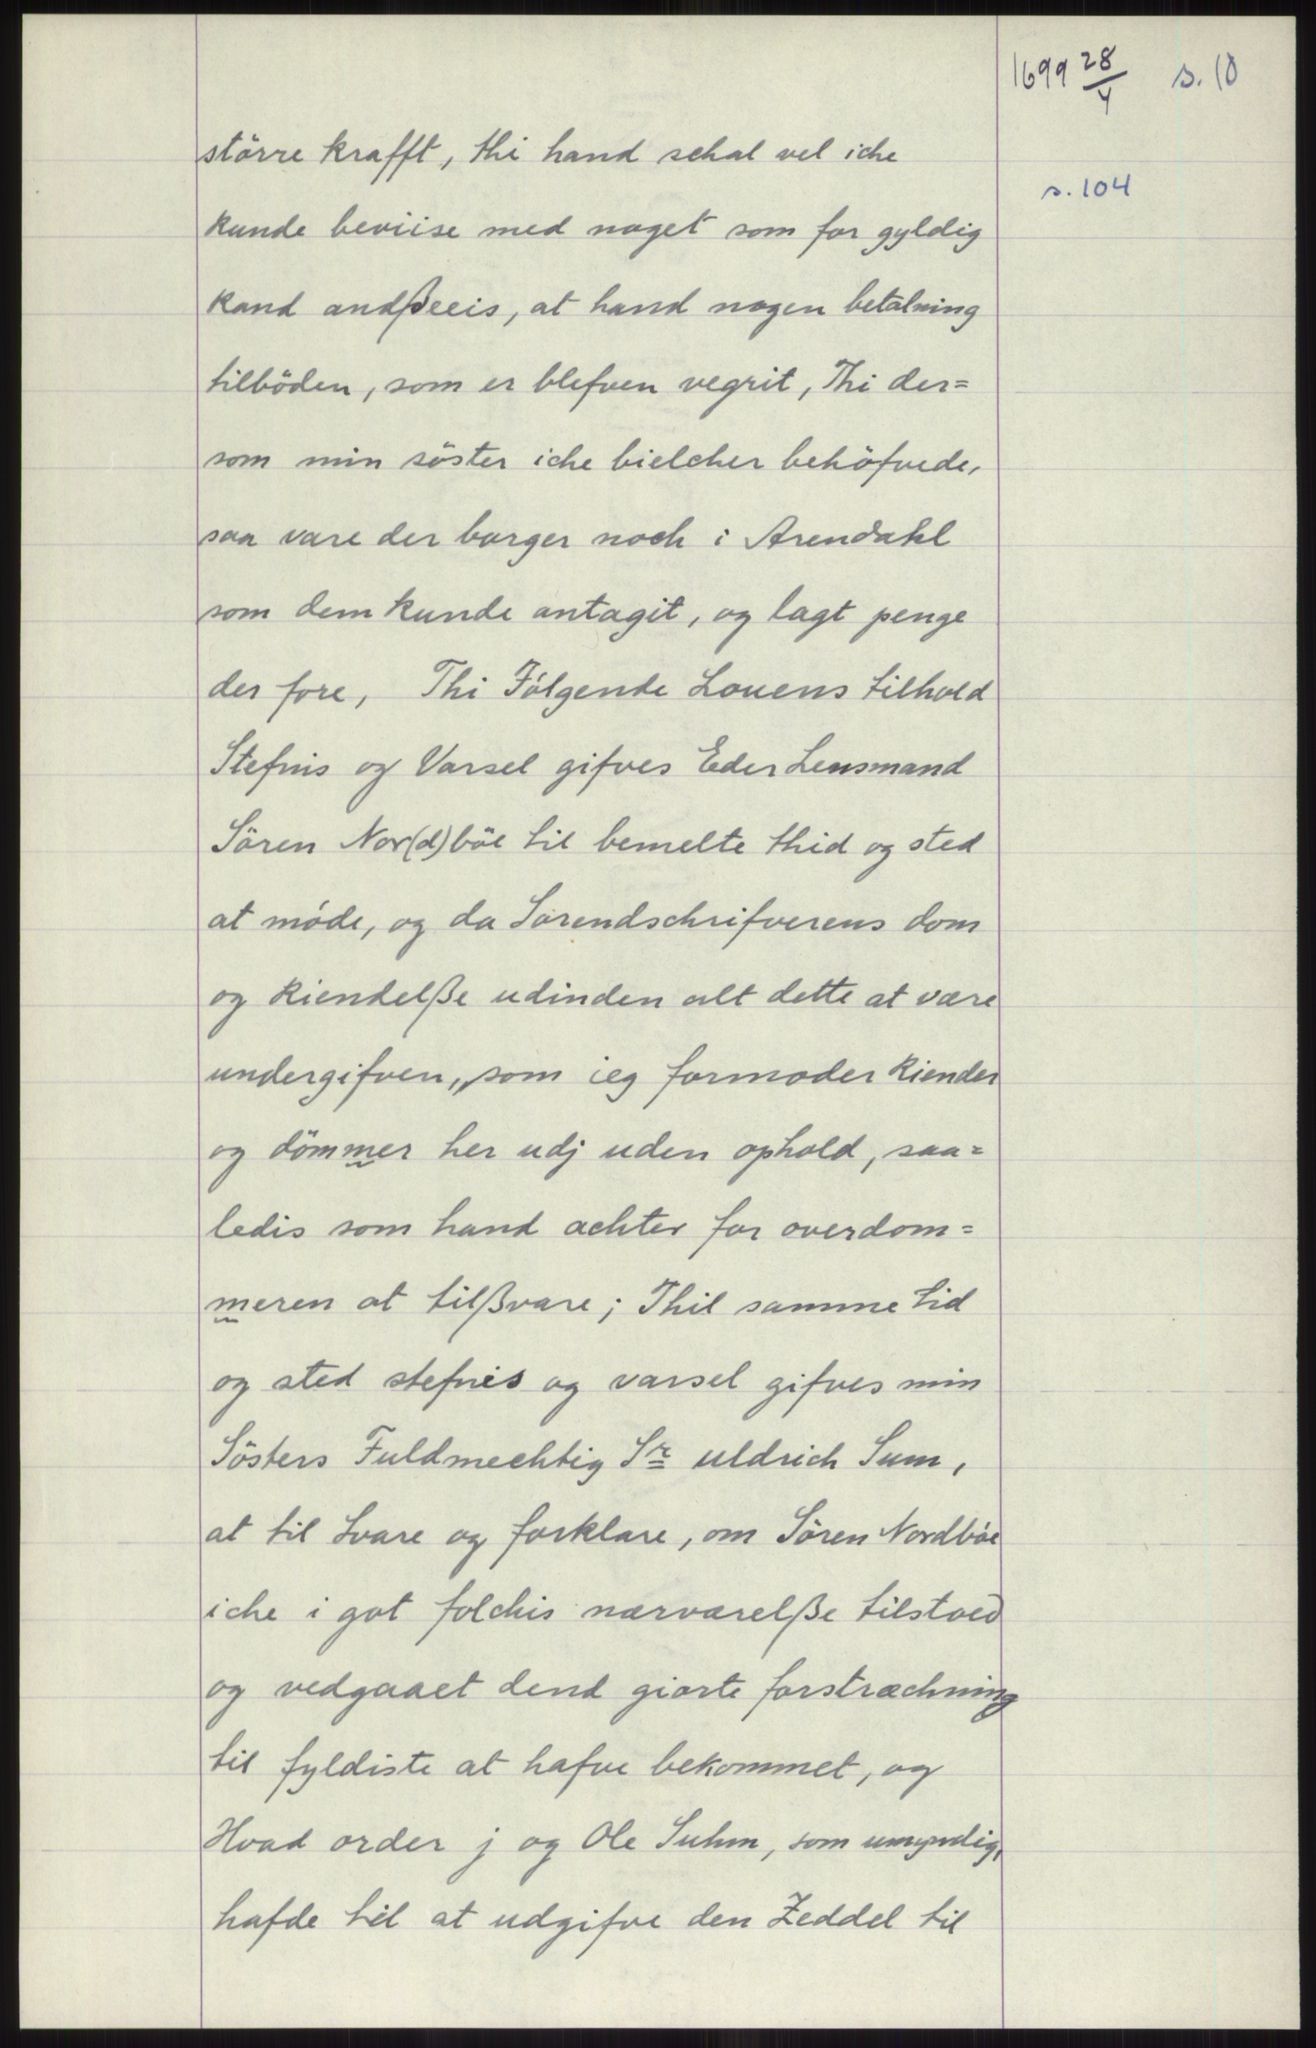 1699 28/4 s. 10
s. 104
större krafft, thi hand schal vel iche
kunde beviise med noget som for gyldig
kand andßeeis, at hand nogen betalning
tilböden, som er blefven vegrit, Thi der=
som min söster iche bielcher behöfvede,
saa vare der borger noch i Arendahl
som dem kunde antagit, og lagt penge
der fore, Thi Fölgende Louens tilhold
Stefnis og Varsel gifves Eder Lensmand
Sören Nor(d)böe til bemelte thid og sted
at möde, og da Sorendschrifverens dom
og kiendelße udinden alt dette at være
undergifven, som ieg formoder kiender
og dömmer her udj uden ophold, saa=
ledis som hand achter for overdom=
meren at tilßvare; Thil samme tid
og sted stefnes og varsel gifves min
Sösters Fuldmechtig Sr uldrich Sum,
at til svare og forklare, om Sören Nordböe
iche i got folchis nærværelße tilstoed
og vedgaaet dend giorte forstræchning
til fyldiste at hafve bekommet, og
Hvad order j og Ole Suhm, som umyndig,
hafde til at udgifve den Zeddel til